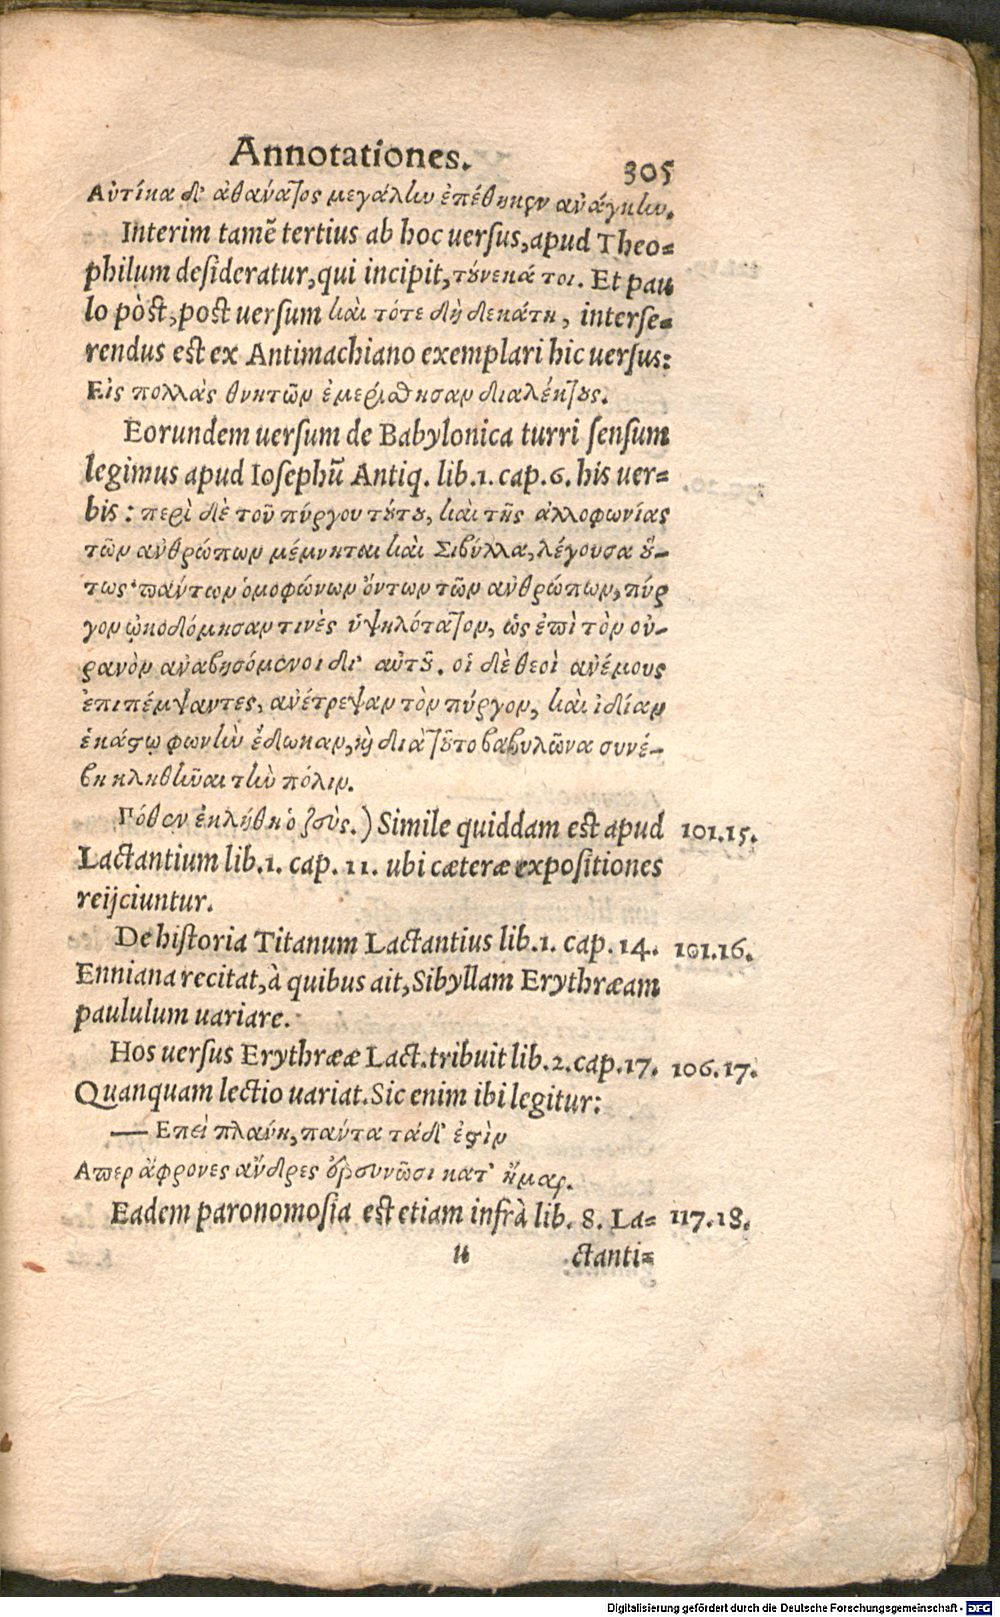 Annotationes. 305
Αὐτίκα δ' ἀθάνατος μεγάλην ἐπέθηκεν ἀνάγκην.
Interim tamē tertius ab hoc uersus, apud Theo=
philum desideratur, qui incipit, τούνεκά τοι. Et pau
lo pòst, post uersum καὶ τότε δὴ δεκάτη, interse=
rendus est ex Antimachiano exemplari hic uersus:
Εἰς πολλὰς θνητῶν ἐμερίσθησαν διαλέκτους.
Eorundem uersum de Babylonica turri sensum
legimus apud Iosephū Antiq. lib. 1. cap. 6. his uer=
bis: περὶ δὲ τοῦ πύργου τούτου, καὶ τῆς ἀλλοφωνίας
τῶν ἀνθρώπων μέμνηται καὶ Σιβύλλα, λέγουσα οὕ-
τως· πάντων ὁμοφώνων ὄντων τῶν ἀνθρώπων, πύρ
γον ᾠκοδόμησαν τινὲς ὑψηλότατον, ὡς ἐπὶ τὸν οὐ-
ρανὸν ἀναβησόμενοι δι' αὐτοῦ. οἱ δὲ θεοὶ ἀνέμους
ἐπιπέμψαντες, ἀνέτρεψαν τὸν πύργον, καὶ ἰδίαν
ἑκάστῳ φωνὴν ἔδωκαν, καὶ διὰ τοῦτο βαβυλῶνα συνέ-
βη κληθῆναι τὴν πόλιν.
Πόθεν ἐκλήθη ὁ ζεύς.) Simile quiddam est apud 101.15.
Lactantium lib. 1. cap. 11. ubi cæteræ expositiones
reijciuntur.
De historia Titanum Lactantius lib. 1. cap. 14. 101.16.
Enniana recitat, à quibus ait, Sibyllam Erythræam
paululum uariare.
Hos uersus Erythrææ Lact. tribuit lib. 2. cap. 17. 106.17.
Quanquam lectio uariat. Sic enim ibi legitur:
— Επεὶ πλάνη, πάντα τάδ' ἐστὶν
Απερ ἄφρονες ἄνδρες ἐρευνῶσι κατ' ἦμαρ.
Eadem paronomosia est etiam infrà lib. 8. La= 117.18.
u ctanti=
Digitalisierung gefördert durch die Deutsche Forschungsgemeinschaft - DFG